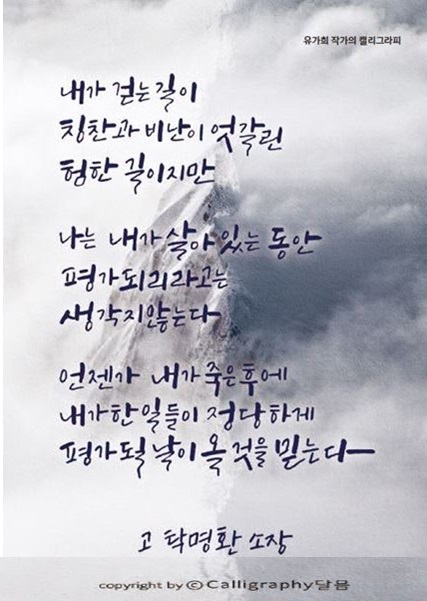 유가희 작가의 캘리그라피
내가 걷는 길이
칭찬과 비난이 엇갈린
험한 길이지만
나는 내가 살아 있는 동안
평가되리라고는
생각지않는다
언젠가 내가 죽은후에
내가한 일들이 정당하게
평가될 날이 올 것을 믿는다
고 탁명환 소장
copyright by ⓒCalligraphy달믐